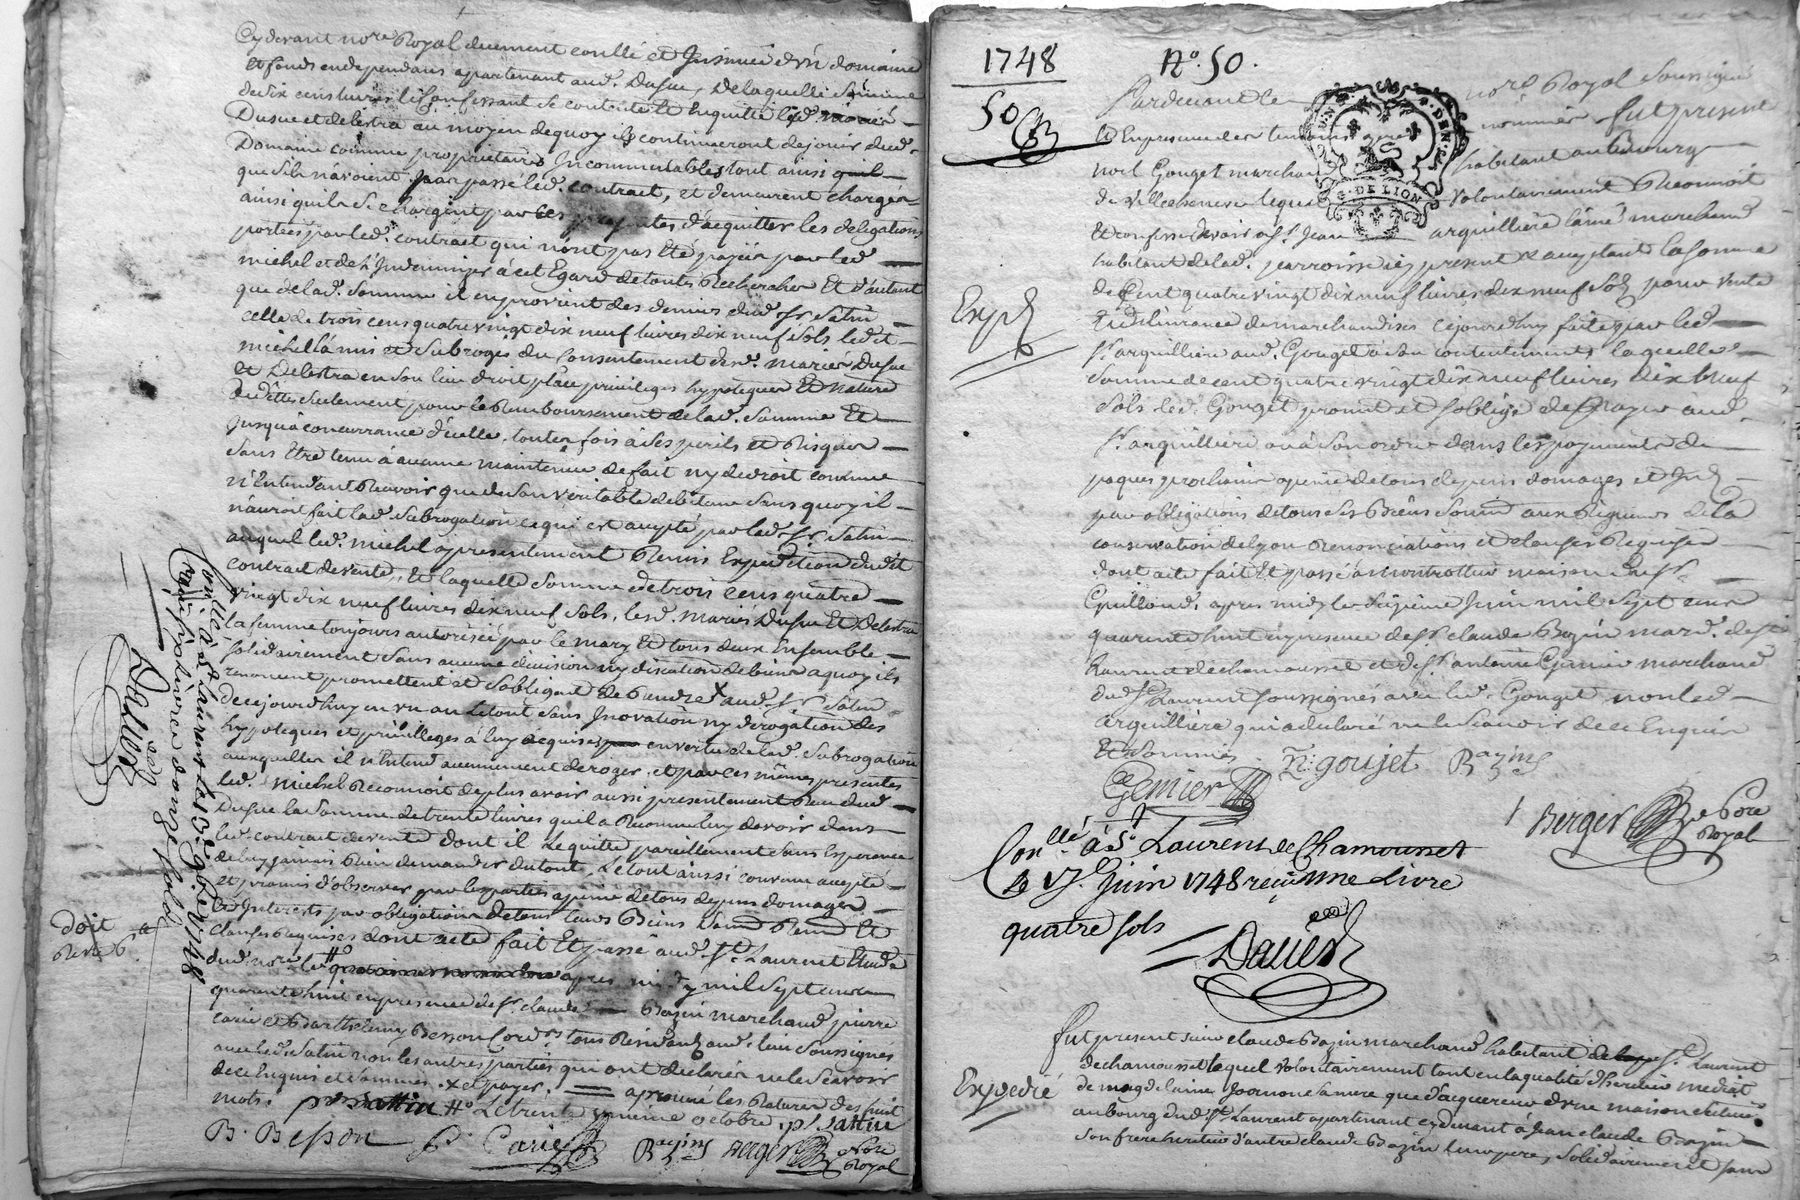 Cy devant no.re Royal duement conllé et Insinué d'un domaine
et fonds en dependans appartenant aud. Dusue, de laquelle somme
de dix cens livres il confessant se contente et en quitte led. mariés
Dusue et delestra au moyen de quoy ils continueront de jouir dud.
Domaine comme proprietaires Incommutables tout ainsi qu'il
que s'ils n'avoient pas passé led. contrat, et demeurent chargés
ainsi qu'ils se chargent par ces presentes d'acquitter les delegations
portées par led. contrat qui n'ont pas eté payées par led.
michel et de l'Indemniser à cet Egard de toutes Recherches Et d'autant
que de lad. somme il en provient des deniers dud. Sr. Satin
celle de trois cens quatre vingt dix neuf livres dix neuf sols led. et
michel l'a mis et subrogés du consentement desd. mariés Dusue
et Delestra en son lieu droit place privileges hypoteques Et nature
de dettes seulement pour le Remboursement de lad. somme Et
jusqu'à concurrance d'icelle, toutes fois à ses perils et Risques
sans Etre tenu à aucune maintenue de fait ny de droit comme
n'Entendant Recevoir que de son veritable debiteur sans quoy il
n'auroit fait lad. subrogation ce qui est accepté par led. Sr. Satin
auquel led. michel a presentement Remis Expedition dudit
contrat de vente, Et laquelle somme de trois cens quatre
vingt dix neuf livres dix neuf sols, lesd. mariés Dusue Et Delestra
la femme toujours autorisée par le mary Et tous deux Ensemble
solidairement sans aucune division ny discution de biens a quoy ils
renoncent promettent et s'obligent de Rendre x aud. Sr. Satin
de ce jourd'huy en un an le tout sans Inovation ny derogation des
hypoteques et privilleges à luy acquises en vertu de lad. subrogation
auxquelles il n'Entend aucunement deroger, et par ces mêmes presentes
led. michel Reconnoit de plus avoir aussi presentement Reçu dud.
Dusue la somme de trente livres qu'il a Reconnu luy devoir dans
led. contrat de vente dont il le quitte pareillement sans Esperance
de luy jamais Rien demander du tout, Le tout aussi convenu accepté
et promis d'observer par les parties a peine de tous depens domages
et Interets par obligation de tous leurs Biens Soumd Renond Et
clauses Requises dont acte fait Et passé aud. St. Laurent Etude
dud. nore. led. # apres midy mil sept cens
quarente huit en presence de Sr. claude Bazin marchand, pierre
carie et Barthelemy Besson Cord.rs tous Residants aud. lieu soussignés
avec led. Satin non les autres parties qui ont declaré ne le sçavoir
de ce Enquis et sommés. x et payer. = approuvé les Ratures de huit
mots. p. Sattin # Le trente unieme octobre. p. Sattin
B. Besson P. Carie Bazins Berger No.re Royal
Conllé à St. Laurent les 3 9bre 1748
reçu six livres douze sols
Davier
doit
Reste 6 d.
1748
N.o 50.
50
Pardevant le no.re Royal Soussigné
et En presence des temoins apres nommés fut present
noel Gouget marchand habitant au Bourg
de Villecheneve lequel volontairement Reconnoit
Et confesse devoir à Sr. Jean arquilliere l'ainé marchand
habitant de lad. parroisse icy present et acceptant la somme
de Cent quatre vingt dix neuf livres dix neuf sols pour vente
Et delivrance de marchandises ce jourd'huy faites par led.
Sr. arquilliere aud. Gouget à son contentement, laquelle
somme de cent quatre vingt dix neuf livres dix neuf
sols led. Gouget promet et s'oblige de payer aud.
Sr. arquilliere ou à son ordre dans les payements de
paques prochain a peine de tous depens domages et Int.
par obligations de tous ses Biens Soumd aux Rigueurs de la
conservation de Lyon Renonciations et clauses Requises
dont acte fait Et passé à Montrottier maison de Sr.
Guilloud, apres midy le seizieme Juin mil sept cens
quarente huit en presence de Sr. claude Bazin mard. de St.
Laurent de chamousset et de Sr. antoine Gemier marchand
dud. St. Laurent soussignés avec led. Gouget non led.
arquilliere qui a declaré ne le Sçavoir de ce Enquis
Et sommé.
Gemier N: goujet Bazins
Berger No.re Royal
Expé
Conllé à St. Laurent de Chamousset
Le 17. Juin 1748 reçu une Livre
quatre sols
Davier
G. DE LION
Expedié
fut present sieur claude Bazin marchand habitant de St. Laurent
de chamousset lequel volontairement tant en la qualité d'heritier mediat
de magdelaine Jeannon sa mere que d'acquereur d'une maison située
au bourg dud. St. Laurent apartenant cy devant à Jean claude Bazin
son frere heritier d'autre claude Bazin leur pere, solidairement sans